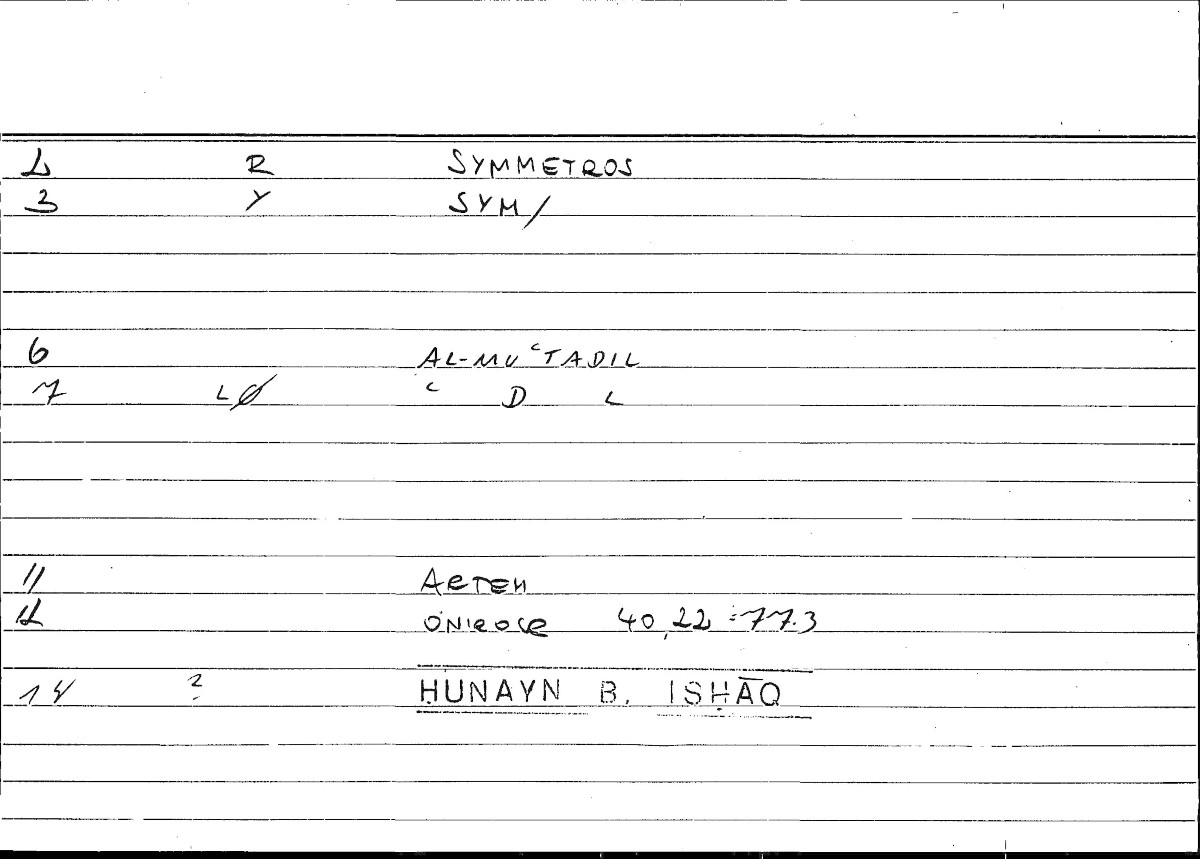 2 R SYMMETROS
3 Y SYM/
6 AL-MUʿTADIL
7 LØ ʿ D L
11 ARTEM
12 ONIROCR 40,22 = 77.3
14 ? ḤUNAYN B. ISḤĀQ